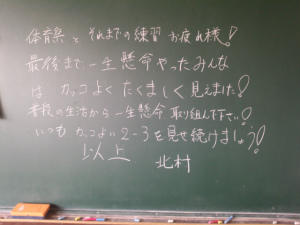 体育祭とそれまでの練習お疲れ様!
最後まで一生懸命やったみんな
は カッコよく たくましく見えました!
普段の生活から一生懸命取り組んで下さい!
いつも カッコよい2-3を見せ続けましょう!
以上 北村